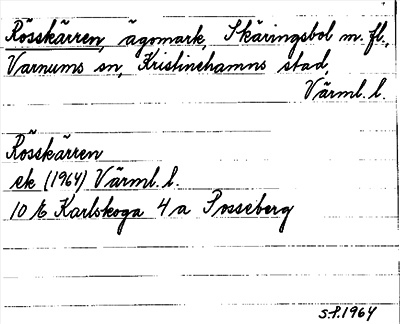 Rösskärren, ägomark, Skäringsbol m. fl.,
Varnums sn, Kristinehamns stad,
Värml. l.
Rösskärren
ek (1964) Värml. l.
10 E Karlskoga 4 a Posseberg
S.P. 1964